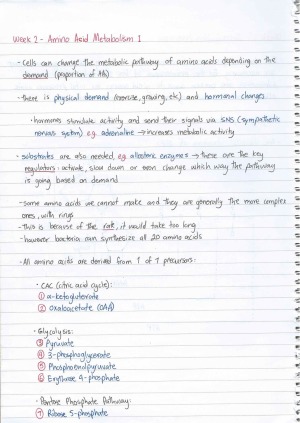 Week 2 - Amino Acid Metabolism 1
- Cells can change the metabolic pathway of amino acids depending on the
demand (proportion of AAs)
- there is physical demand (exercise, growing, etc) and hormonal changes
- hormones stimulate activity and send their signals via SNS (sympathetic
nervous system) e.g. adrenaline → increases metabolic activity
- substrates are also needed, e.g. allosteric enzymes → these are the key
regulators: activate, slow down or even change which way the pathway
is going based on demand
- some amino acids we cannot make and they are generally the more complex
ones, with rings
- this is because of the risk, it would take too long
- however bacteria can synthesize all 20 amino acids
- All amino acids are derived from 1 of 7 precursors:
• CAC (citric acid cycle):
① α-ketoglutarate
② Oxaloacetate (OAA)
• Glycolysis:
③ Pyruvate
④ 3-phosphoglycerate
⑤ Phosphoenolpyruvate
⑥ Erythrose 4-phosphate
• Pentose Phosphate Pathway:
⑦ Ribose 5-phosphate